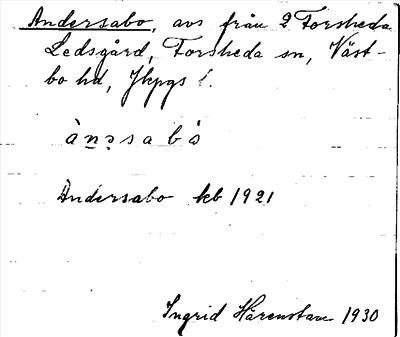 Andersabo, avs från 2 Forsheda
Ledsgård, Forsheda sn, Väst-
bo hd, Jkpgs l.
à n̠ ə s a b ò
Andersabo kb 1921
Ingrid Härenstam 1930